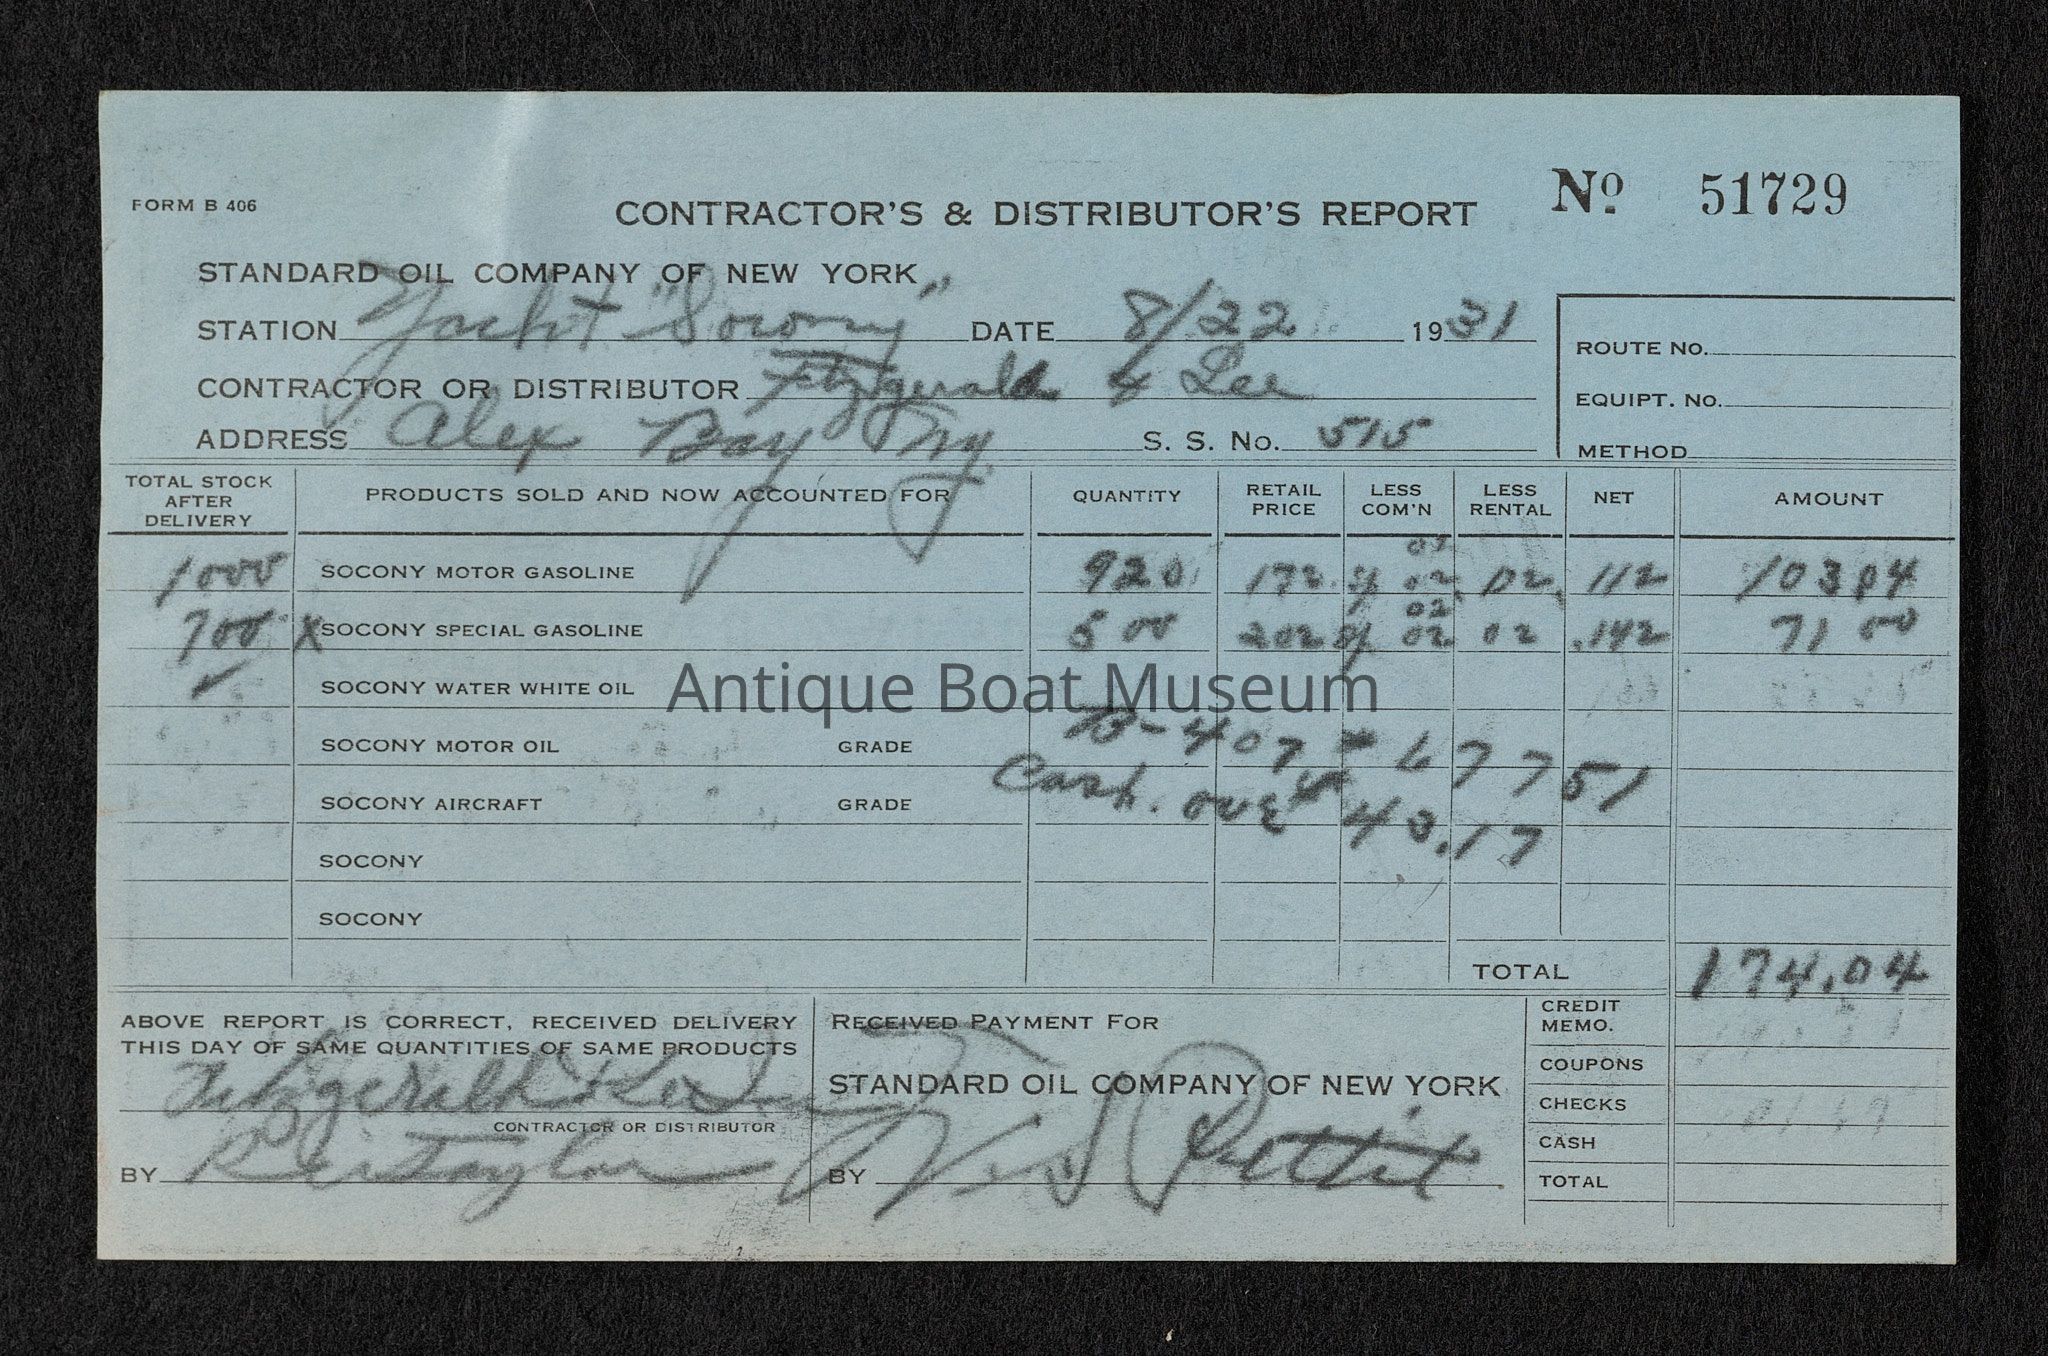 FORM B 406
CONTRACTOR'S & DISTRIBUTOR'S REPORT
Nº 51729
STANDARD OIL COMPANY OF NEW YORK
STATION Yacht "Socony" DATE 8/22 1931
ROUTE NO.
CONTRACTOR OR DISTRIBUTOR Fitzgerald & Lee
EQUIPT. NO.
ADDRESS Alex Bay Ny. S. S. NO. 515
METHOD
TOTAL STOCK AFTER DELIVERY PRODUCTS SOLD AND NOW ACCOUNTED FOR QUANTITY RETAIL PRICE LESS COM'N LESS RENTAL NET AMOUNT
1000 SOCONY MOTOR GASOLINE 920 172 02 02 112 103 04
700 X SOCONY SPECIAL GASOLINE 500 202 02 02 .142 71 00
SOCONY WATER WHITE OIL
Antique Boat Museum
SOCONY MOTOR OIL GRADE B-407 # 67751
SOCONY AIRCRAFT GRADE Cash. over 43.17
SOCONY
SOCONY
TOTAL 174.04
ABOVE REPORT IS CORRECT, RECEIVED DELIVERY
THIS DAY OF SAME QUANTITIES OF SAME PRODUCTS
Fitzgerald & Lee
CONTRACTOR OR DISTRIBUTOR
BY Taylor
RECEIVED PAYMENT FOR
STANDARD OIL COMPANY OF NEW YORK
BY Pettit
CREDIT MEMO.
COUPONS
CHECKS
CASH
TOTAL